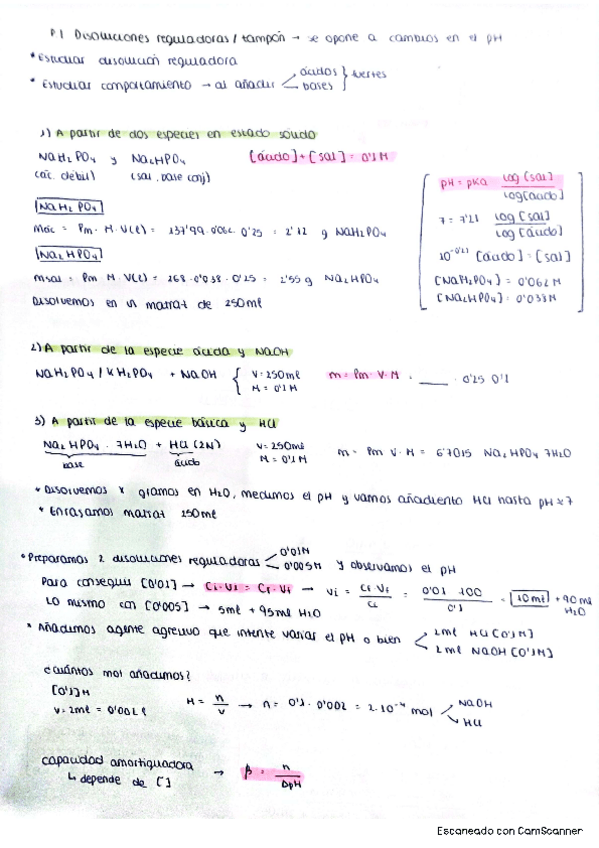 P.1 Disoluciones reguladoras / tampón → se opone a cambios en el pH
* Estudiar disolución reguladora
* Estudiar comportamiento → al añadir < ácidos bases } fuertes
1) A partir de dos especies en estado sólido
NaH₂PO₄ y Na₂HPO₄ [ácido] + [sal] = 0'1M
(ác. débil) (sal, base conj)
NaH₂PO₄
mác = Pm · M · V(l) = 137'99 · 0'062 · 0'25 = 2'12 g NaH₂PO₄
Na₂HPO₄
msal = Pm · M · V(l) = 268 · 0'038 · 0'25 = 2'55 g Na₂HPO₄
Disolvemos en un matraz de 250ml
pH = pKa log[sal] / log[ácido]
7 = 7'21 log[sal] / log[ácido]
10^-0'21 [ácido] = [sal]
[NaH₂PO₄] = 0'062 M
[Na₂HPO₄] = 0'038 M
2) A partir de la especie ácida y NaOH
NaH₂PO₄ / KH₂PO₄ + NaOH { V = 250ml M = 0'1 M m = Pm · V · M = ____ · 0'25 0'1
3) A partir de la especie básica y HCl
Na₂HPO₄ · 7H₂O + HCl (2N) V = 250ml M = 0'1 M m = Pm V · M = 6'7015 Na₂HPO₄ 7H₂O
base ácido
* Disolvemos x gramos en H₂O, medimos el pH y vamos añadiento HCl hasta pH ≈ 7
* Enrasamos matraz 250ml
* Preparamos 2 disoluciones reguladoras < 0'01M 0'005M y observamos el pH
Para conseguir [0'01] → Ci · Vi = Cf · Vf → Vi = Cf · Vf / Ci = 0'01 · 100 / 0'1 = 10ml + 90ml H₂O
Lo mismo con [0'005] → 5ml + 95ml H₂O
* Añadimos agente agresivo que intente variar el pH o bien < 2ml HCl [0'1M] 2ml NaOH [0'1M]
¿Cuántos mol añadimos?
[0'1] M
V = 2ml = 0'002 l
M = n / V → n = 0'1 · 0'002 = 2 · 10⁻⁴ mol < NaOH HCl
capacidad amortiguadora → β = n / ΔpH
↳ depende de [ ]
Escaneado con CamScanner